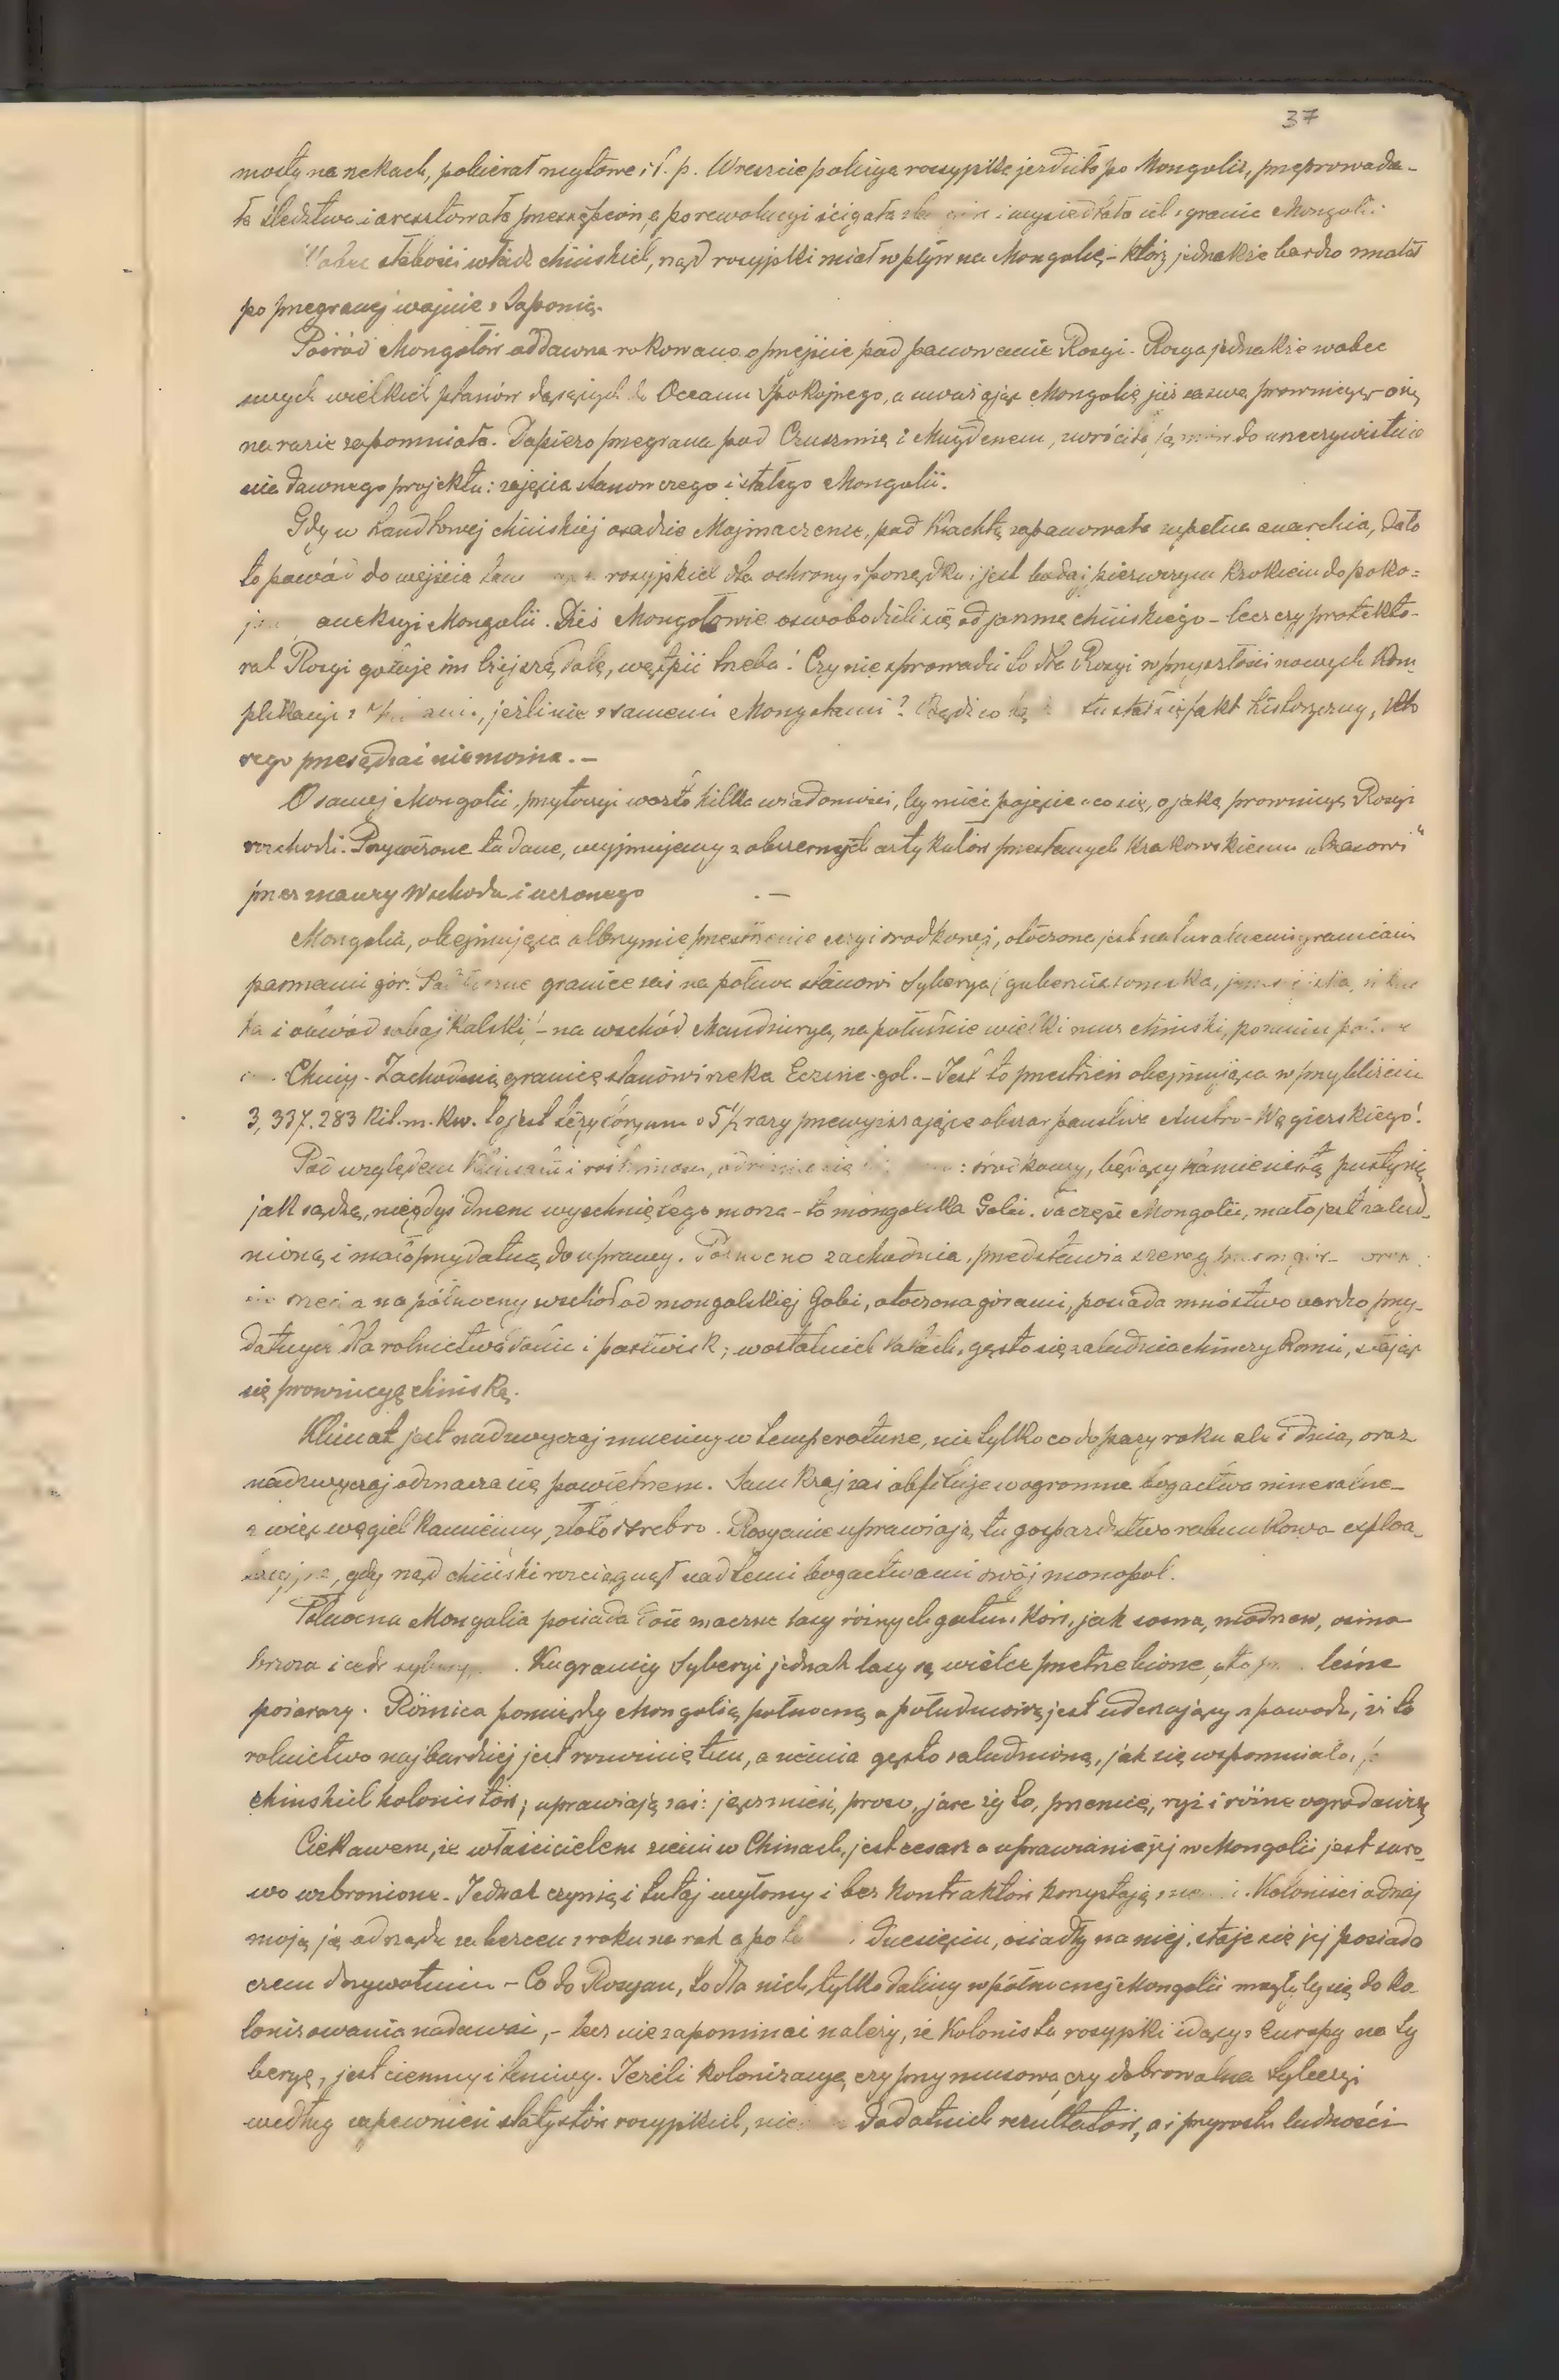 37
mosty na rzekach, pobierał mytowe i t. p. Wreszcie policya rosyjska jeździła po Mongolii, przeprowadza-
ła śledztwa i aresztowała przestępców, a po rewolucyi ścigała i wysiedlała ich z granic Mongolii.
Wobec słabości władz chińskich, rząd rosyjski miał wpływ na Mongolię – który jednakże bardzo zmalał
po przegranej wojnie z Japonią.
Pośród Mongołów oddawna rokowano o przejście pod panowanie Rosyi. Rosya jednakże wobec
swych wielkich planów dążących do Oceanu Spokojnego, a uważając Mongolię już za swą prowincyę – o nią
na razie zapomniała. Dopiero przegrana pod Czuszimą i Mugdenem, zwróciła do urzeczywistnie
nia dawnego projektu: zajęcia stanowczego i stałego Mongolii.
Gdy w handlowej chińskiej osadzie Majmaczenie, pod Kiachtą zapanowała zupełna anarchia, dało
to powód do wejścia rosyjskich dla ochrony i porządku i jest bodaj pierwszym krokiem do poko=
aneksyi Mongolii. Dziś Mongołowie oswobodzili się od jarzma chińskiego – lecz czy protekto-
rat Rosyi gotuje im lżejszą dolę, wątpić trzeba! Czy nie sprowadzi to dla Rosyi w przyszłości nowych kom
plikacyi z , jeśli nie z samemi Mongołami? Bądź co bądź tu stał się fakt historyczny, któ
rego przesądzać nie można. –
O samej Mongolii, przytoczyć warto kilka wiadomości, by mieć pojęcie o co się, o jaką prowincyę Rosyi
rozchodzi. Przywiezione tu dane, wyjmujemy z obszernych artykułów przesłanych krakowskiemu „Czasowi“
przez znawcy Wschodu i uczonego . –
Mongolia, obejmująca olbrzymie przestrzenie Azyi środkowej, otoczona jest naturalnemi granicami
pasmami gór. granicę zaś na północ stanowi Syberya (gubernia tomska, jenisejska, irkuc
ka i obwód zabajkalski) – na wschód Mandżurya, na południe wielki mur chiński, pomimo
Chiny. Zachodnią granicę stanowi rzeka Eczine-gol. – Jest to przestrzeń obejmująca w przybliżeniu
3,337.283 kil. m. kw. to jest terytoryum o 5½ razy przewyższające obszar państwa Austro-Węgierskiego!
Pod względem klimatu i roślinnym, odróżnienia : środkowy, będący kamienistą pustynią
jak sądzą, niegdyś dnem wyschniętego morza – to mongolska Gobi. Ta część Mongolii, mało jest zalud-
nioną i mało przydatną do uprawy. Północno zachodnia, przedstawia szereg
na północny wschód od mongolskiej Gobi, otoczona górami, posiada mnóstwo bardzo przy-
datnych dla rolnictwa dolin i pastwisk; w ostatnich latach, gęsto się zaludnia chińczykami, stając
się prowincyą chińską.
Klimat jest nadzwyczaj zmienny w temperaturze, nie tylko co do pory roku ale i dnia, oraz
nadzwyczaj odznacza się powietrzem. Sam kraj zaś obfituje w ogromne bogactwa mineralne –
a więc węgiel kamienny, złoto i srebro. Rosyanie uprawiają tu gospodarstwo rabunkowo exploa-
tacyjne, gdy rząd chiński rozciągnął nad temi bogactwami swój monopol.
Północna Mongolia posiada dość znaczne lasy różnych gatunków, jak sosna, modrzew, osina
brzoza i cedr . Ku granicy Syberyi jednak lasy są wielce przetrzebione, leśne
pożary. Różnica pomiędzy Mongolią północną a południową jest uderzający z powodu, iż tu
rolnictwo najbardziej jest rozwiniętem, a ziemia gęsto zaludnioną, jak się wspomniało,
chińskich kolonistów; uprawiają zaś: jęczmień, proso, jare żyto, pszenicę, ryż i różne ogrodowizny
Ciekawem, że właścicielem ziemi w Chinach, jest cesarz a uprawianie jej w Mongolii jest suro-
wo wzbronione. Jednak czynią i tutaj wyłomy i bez kontraktów korzystają z . Koloniści odnaj
mują ją od rządu za bezcen z roku na rok a po dziesięciu, osiadły na niej, staje się jej posiada
czem dożywotnim – Co do Rosyan, to dla nich, tylko doliny w północnej Mongolii mogłyby się do ko-
lonizowania nadawać, – lecz nie zapominać należy, że kolonista rosyjski idący z Europy na Sy
beryę, jest ciemny i leniwy. Jeżeli kolonizacya, czy przymusowa czy dobrowolna Syberyi
według zapewnień statystów rosyjskich, nie dodatnich rezultatów, a i przyrostu ludności